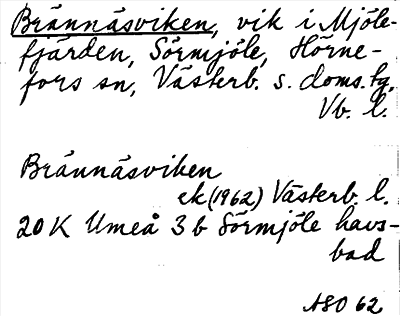 Brännäsviken, vik i Mjöle-
fjärden, Sörmjöle, Hörne-
fors sn, Västerb. s. doms.tg,
Vb. l.
Brännäsviken
ek (1962) Västerb. l.
20 K Umeå 3 b Sörmjöle havs-
bad
ASO 62